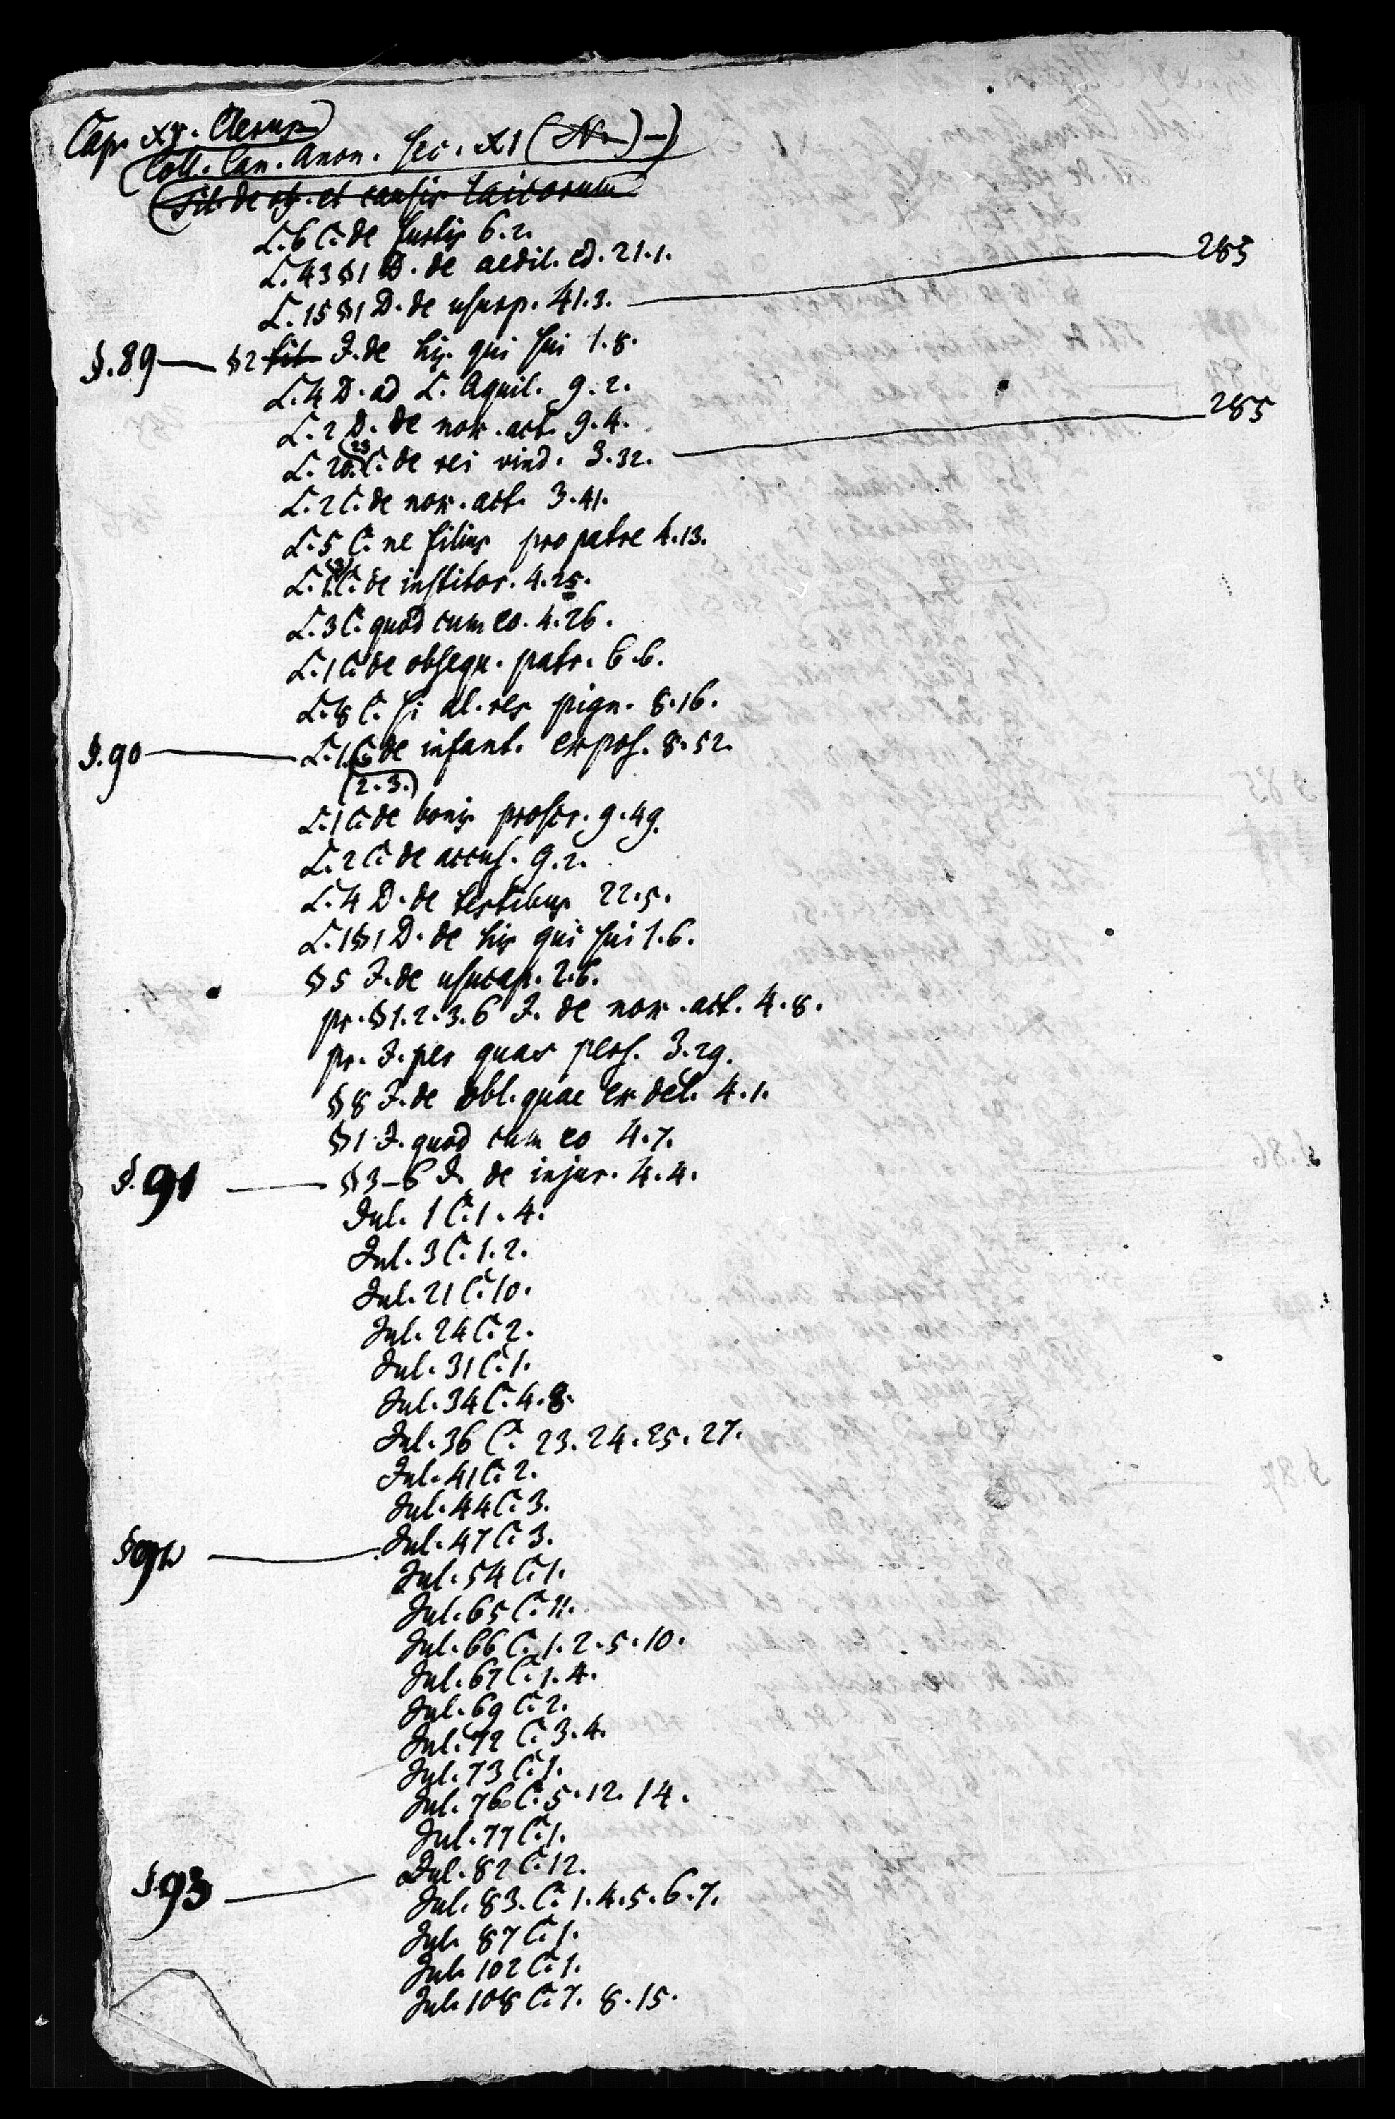 Cap. XV. Clerus
Coll. Can. Anon. sec. XI
Tit. de off. et causis laicorum
L. 6 C. de furtis 6.2.
L. 43 §1 D. de aedil. ed. 21.1.
L. 15 §1 D. de usurp. 41.3. 283
§.89 §2 tit. I. de his qui sui 1.8.
L. 4 D. ad L. Aquil. 9.2.
L. 2 D. de nox. act. 9.4. 285
L. 20. 23 C. de rei vind. 3.32.
L. 2 C. de nox. act. 3.41.
L. 5 C. ne filius pro patre 4.13.
L. 1. C. de institor. 4.25.
L. 3 C. quod cum eo. 4.26.
L. 1 C. de obsequ. patr. 6.6.
L. 8 C. si al. res pign. 8.16.
§.90 L. 1. C. de infant. expos. 8.52.
(2.3.)
L. 1 C. de bonis proscr. 9.49.
L. 2 C. de accus. 9.2.
L. 4 D. de testibus 22.5.
L. 1 §1 D. de his qui sui 1.6.
§5 I. de usucap. 2.6.
pr. §1.2.3.6 I. de nox. act. 4.8.
pr. I. per quas pers. 3.29.
§8 I. de obl. quae ex del. 4.1.
§1 I. quod cum eo 4.7.
§.91 §3–6 I. de injur. 4.4.
Jul. 1 C. 1. 4.
Jul. 3 C. 1. 2.
Jul. 21 C. 10.
Jul. 24 C. 2.
Jul. 31 C. 1.
Jul. 34 C. 4. 8.
Jul. 36 C. 23. 24. 25. 27.
Jul. 41 C. 2.
Jul. 44 C. 3.
§92 Jul. 47 C. 3.
Jul. 54 C. 1.
Jul. 65 C. 11.
Jul. 66 C. 1. 2. 5. 10.
Jul. 67 C. 1. 4.
Jul. 69 C. 2.
Jul. 72 C. 3. 4.
Jul. 73 C. 1.
Jul. 76 C. 5. 12. 14.
Jul. 77 C. 1.
§.93 Jul. 82 C. 12.
Jul. 83. C. 1. 4. 5. 6. 7.
Jul. 87 C. 1.
Jul. 102 C. 1.
Jul. 108 C. 7. 8. 15.